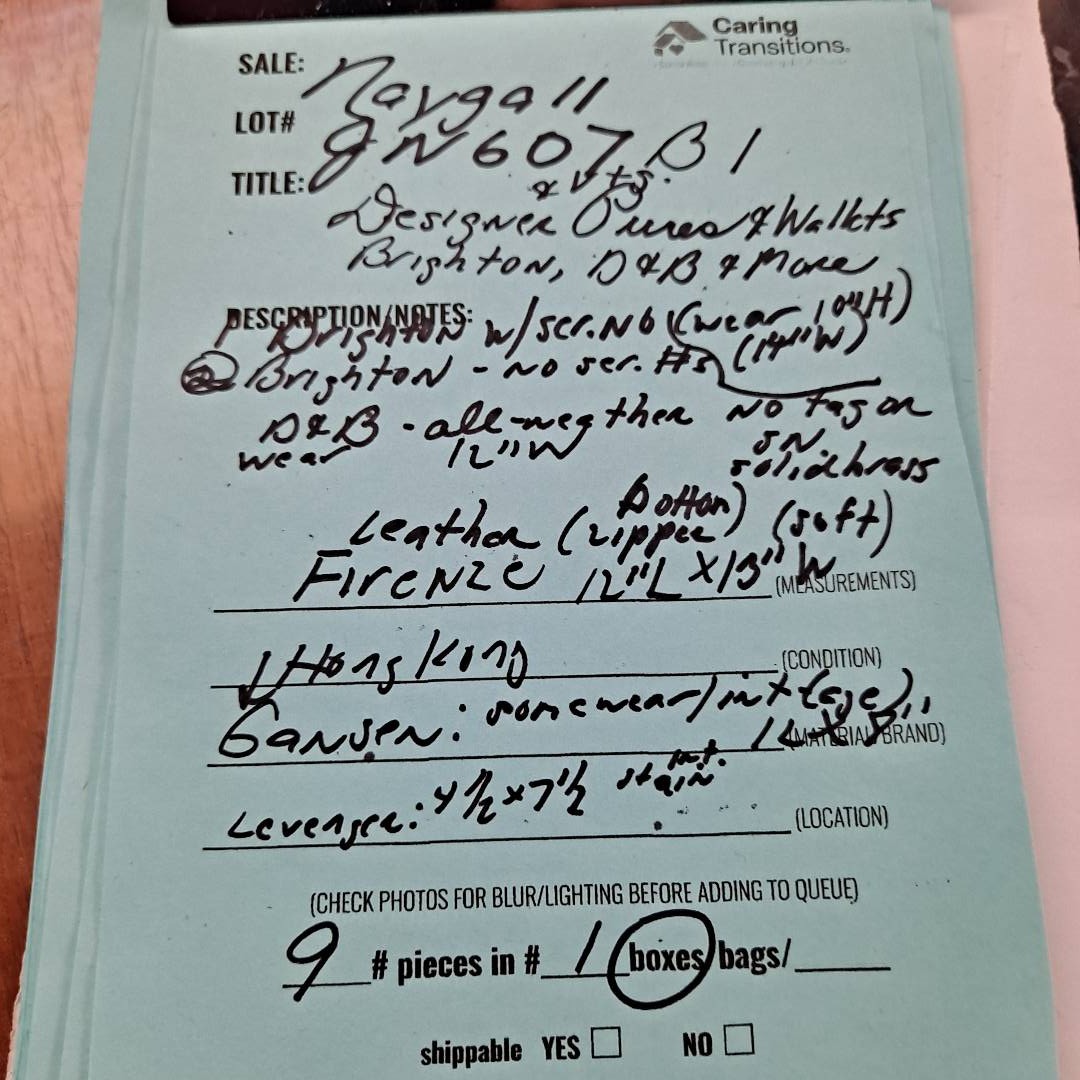 Caring
Transitions.
SALE: Naygall
LOT# JN607 B1
TITLE: & Vtg.
Designer Purses & Wallets
Brighton, D&B & More
DESCRIPTION/NOTES:
1 Brighton w/ser.No (wear 10"H)
(14"W)
2 Brighton - no ser. #s
D&B - all-weather No tag or
wear 12"W SN
solid brass
Leather (button) (soft)
zipper
Firenze 12"L x 13"W (MEASUREMENTS)
Hong Kong (CONDITION)
: some wear/int (age) (MATERIAL/BRAND)
Levenger: 4½ x 7½ stain int. (LOCATION)
(CHECK PHOTOS FOR BLUR/LIGHTING BEFORE ADDING TO QUEUE)
9 # pieces in # 1 boxes/bags/
shippable YES NO